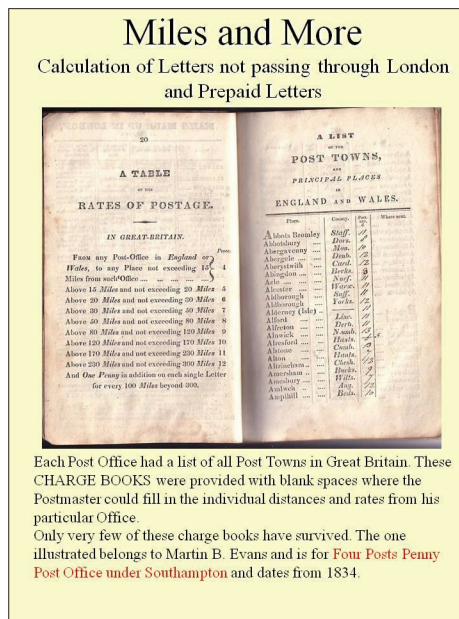 Miles and More
Calculation of Letters not passing through London
and Prepaid Letters
20
A TABLE
OF THE
RATES OF POSTAGE.
IN GREAT-BRITAIN.
Pence.
From any Post-Office in England or
Wales, to any Place not exceeding 15 4
Miles from such Office
Above 15 Miles and not exceeding 20 Miles 5
Above 20 Miles and not exceeding 30 Miles 6
Above 30 Miles and not exceeding 50 Miles 7
Above 50 Miles and not exceeding 80 Miles 8
Above 80 Miles and not exceeding 120 Miles 9
Above 120 Miles and not exceeding 170 Miles 10
Above 170 Miles and not exceeding 230 Miles 11
Above 230 Miles and not exceeding 300 Miles 12
And One Penny in addition on each single Letter
for every 100 Miles beyond 300.
A LIST
OF THE
POST TOWNS,
AND
PRINCIPAL PLACES
IN
ENGLAND AND WALES.
Place. County. Where sent.
Abbots Bromley Staff. 11
Abbotsbury Dors.
Abergavenny Mon. 10
Abergele Denb. 12
Aberystwith Card. 12
Abingdon Berks.
Acle Norf. 11
Alcester Warw.
Aldborough Suff.
Aldborough Yorks. 12
Alderney (Isle)
Alford Linc. 11
Alfreton Derb. 11
Alnwick Numb. 13
Alresford Hants.
Alstone Cumb.
Alton Hants.
Altrincham Chesh.
Amersham Bucks. 9
Amesbury Wilts. 7
Amlwch Ang. 12
Ampthill Beds. 10
Each Post Office had a list of all Post Towns in Great Britain. These
CHARGE BOOKS were provided with blank spaces where the
Postmaster could fill in the individual distances and rates from his
particular Office.
Only very few of these charge books have survived. The one
illustrated belongs to Martin B. Evans and is for Four Posts Penny
Post Office under Southampton and dates from 1834.